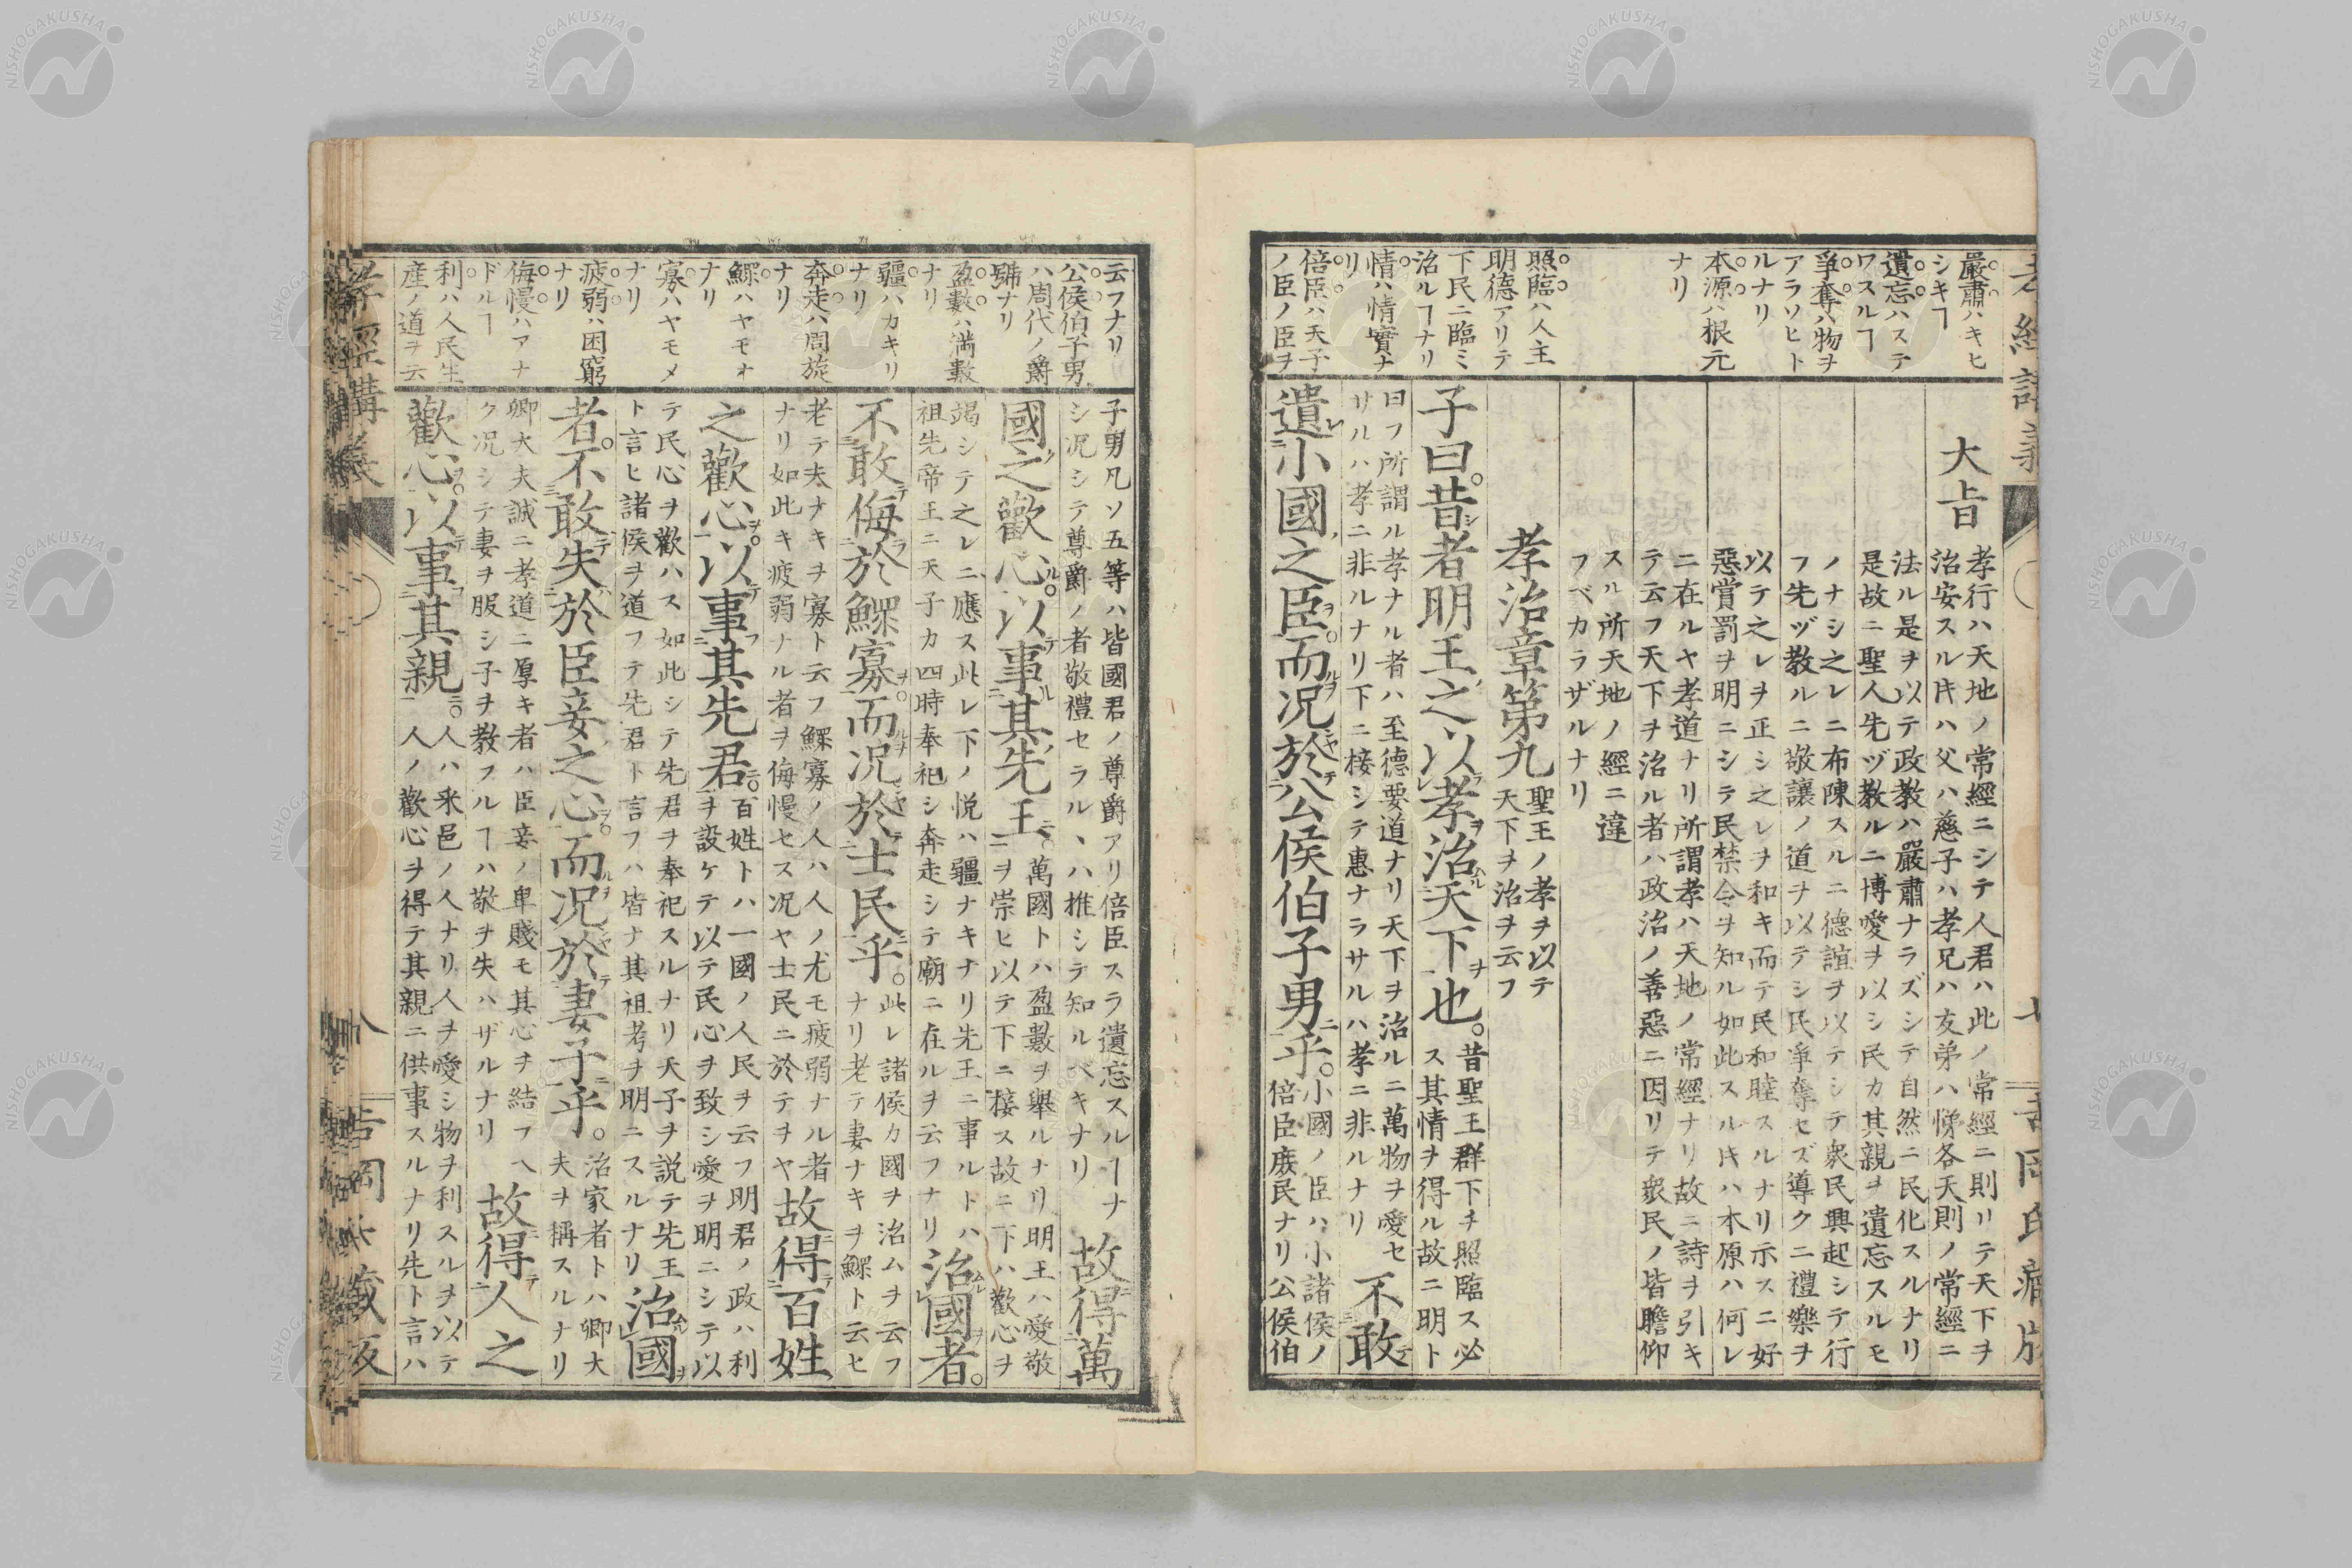 嚴肅ハキヒ
シキヿ
遺忘ハステ
ワスルヿ
爭奪ハ物ヲ
アラソヒト
ルナリ
本源ハ根元
ナリ
照臨ハ人主
明德アリテ
下民ニ臨ミ
治ルヿナリ
情ハ情實ナ
リ
倍臣ハ天子
ノ臣ノ臣ヲ
大旨
孝行ハ天地ノ常經ニシテ人君ハ此ノ常經ニ則リテ天下ヲ
治安スル𪜈ハ父ハ慈子ハ孝兄ハ友弟ハ悌各天則ノ常經ニ
法ル是ヲ以テ政教ハ嚴肅ナラズシテ自然ニ民化スルナリ
是故ニ聖人先ヅ教ルニ博愛ヲ以シ民カ其親ヲ遺忘スルモ
ノナシ之レニ布陳スルニ德誼ヲ以テシテ衆民興起シテ行
フ先ヅ教ルニ敬讓ノ道ヲ以テシ民爭奪セズ導クニ禮樂ヲ
以テ之レヲ正シ之レヲ和キ而テ民和睦スルナリ示スニ好
惡賞罰ヲ明ニシテ民禁令ヲ知ル如此スル𪜈ハ本原ハ何レ
ニ在ルヤ孝道ナリ所謂孝ハ天地ノ常經ナリ故ニ詩ヲ引キ
テ云フ天下ヲ治ル者ハ政治ノ善惡ニ因リテ衆民ノ皆瞻仰
スル所天地ノ經ニ違
フベカラザルナリ
孝治章第九
聖王ノ孝ヲ以テ
天下ヲ治ヲ云フ
子曰。昔者明王之以孝治天下也。
昔聖王群下ヲ照臨ス必
ス其情ヲ得ル故ニ明ト
曰フ所謂ル孝ナル者ハ至德要道ナリ天下ヲ治ルニ萬物ヲ愛セ
サルハ孝ニ非ルナリ下ニ接シテ惠ナラサルハ孝ニ非ルナリ
不敢
遺小國之臣。而况於公侯伯子男乎。
小國ノ臣ハ小諸侯ノ
倍臣庶民ナリ公侯伯
云フナリ
公侯伯子男
ハ周代ノ爵
號ナリ
盈數ハ滿數
ナリ
疆ハカキリ
ナリ
奔走ハ周旋
ナリ
鰥ハヤモオ
ナリ
寡ハヤモメ
ナリ
疲弱ハ困窮
ナリ
侮慢ハアナ
ドルヿ
利ハ人民生
產ノ道ヲ云
子男凡ソ五等ハ皆國君ノ尊爵アリ倍臣スラ遺忘スルヿナ
シ况シテ尊爵ノ者敬禮セラルヽハ推シテ知ルベキナリ
故得萬
國之歡心。以事其先王。
萬國トハ盈數ヲ舉ルナリ明王ハ愛敬
ヲ崇ヒ以テ下ニ接ス故ニ下ハ歡心ヲ
竭シテ之レニ應ス此レ下ノ悅ハ疆ナキナリ先王ニ事ルトハ
祖先帝王ニ天子カ四時奉祀シ奔走シテ廟ニ在ルヲ云フナリ
治國者。
不敢侮於鰥寡。而况於士民乎。
此レ諸侯カ國ヲ治ムヲ云フ
ナリ老テ妻ナキヲ鰥ト云ヒ
老テ夫ナキヲ寡ト云フ鰥寡ノ人ハ人ノ尤モ疲弱ナル者
ナリ如此キ疲弱ナル者ヲ侮慢セス况ヤ士民ニ於テヲヤ
故得百姓
之歡心。以事其先君。
百姓トハ一國ノ人民ヲ云フ明君ノ政ハ利
ヲ設ケテ以テ民心ヲ致シ愛ヲ明ニシテ以
テ民心ヲ歡ハス如此シテ先君ヲ奉祀スルナリ天子ヲ説テ先王
ト言ヒ諸侯ヲ道フテ先君ト言フハ皆ナ其祖考ヲ明ニスルナリ
治國
者。不敢失於臣妾之心。而况於妻子乎。
治家者トハ卿大
夫ヲ稱スルナリ
卿大夫誠ニ孝道ニ厚キ者ハ臣妾ノ卑賤モ其心ヲ結フヘ
ク况シテ妻ヲ服シ子ヲ教フルヿハ敬ヲ失ハザルナリ
故得人之
歡心。以事其親。
人ハ釆邑ノ人ナリ人ヲ愛シ物ヲ利スルヲ以テ
人ノ歡心ヲ得テ其親ニ供事スルナリ先ト言ハ
孝經講義
八
吉岡氏藏版